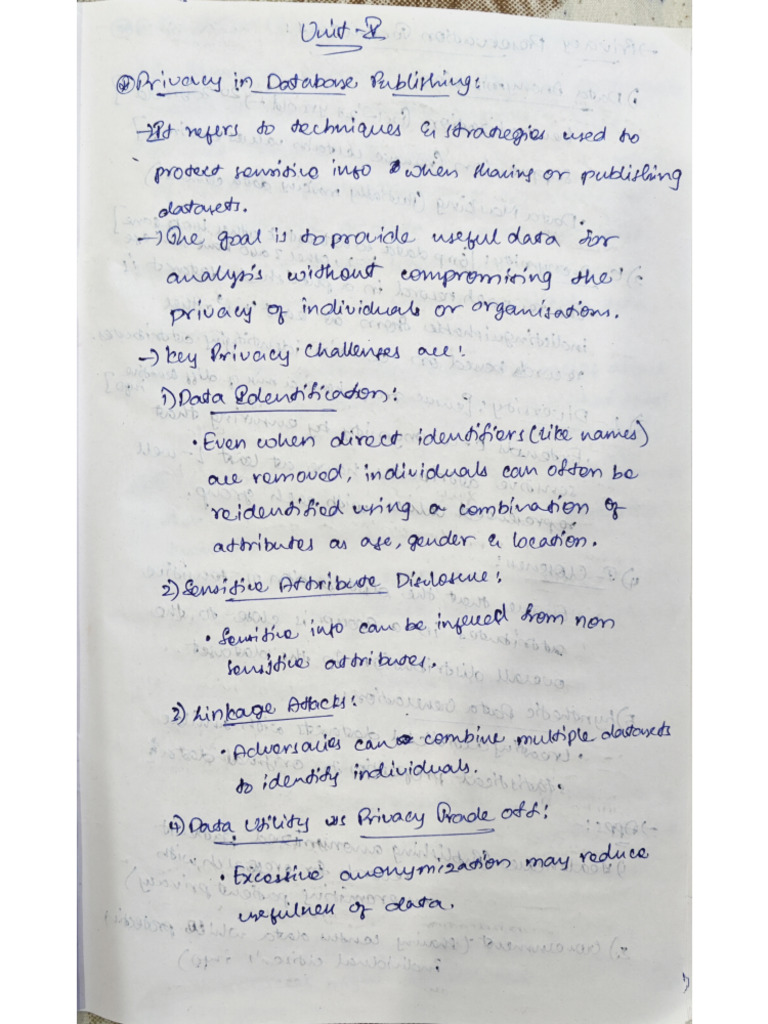 Unit-V
Privacy in Database Publishing:
→ It refers to techniques & strategies used to
protect sensitive info when sharing or publishing
datasets.
→ The goal is to provide useful data for
analysis without compromising the
privacy of individuals or organisations.
→ Key Privacy Challenges are:
1) Data Identification:
• Even when direct identifiers (like names)
are removed, individuals can often be
reidentified using a combination of
attributes as age, gender & location.
2) Sensitive Attribute Disclosure:
• Sensitive info can be infered from non
sensitive attributes.
3) Linkage Attacks:
• Adversaries can combine multiple datasets
to identify individuals.
4) Data Utility vs Privacy Trade off:
• Excessive anonymization may reduce
usefulness of data.